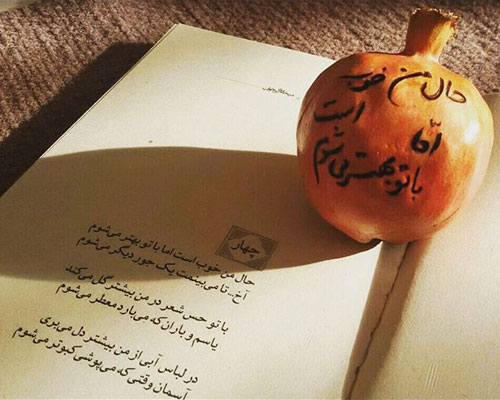 حال من خوب
است
امّا
با تو بهتر می‌شوم
چهار
حال من خوب است اما با تو بهتر می‌شوم
آخ... تا می‌بینمت یک جور دیگر می‌شوم
با تو حس شعر در من بیشتر گل می‌کند
یاسم و باران که می‌بارد معطر می‌شوم
در لباس آبی از من بیشتر دل می‌بری
آسمان وقتی که می‌پوشی کبوتر می‌شوم